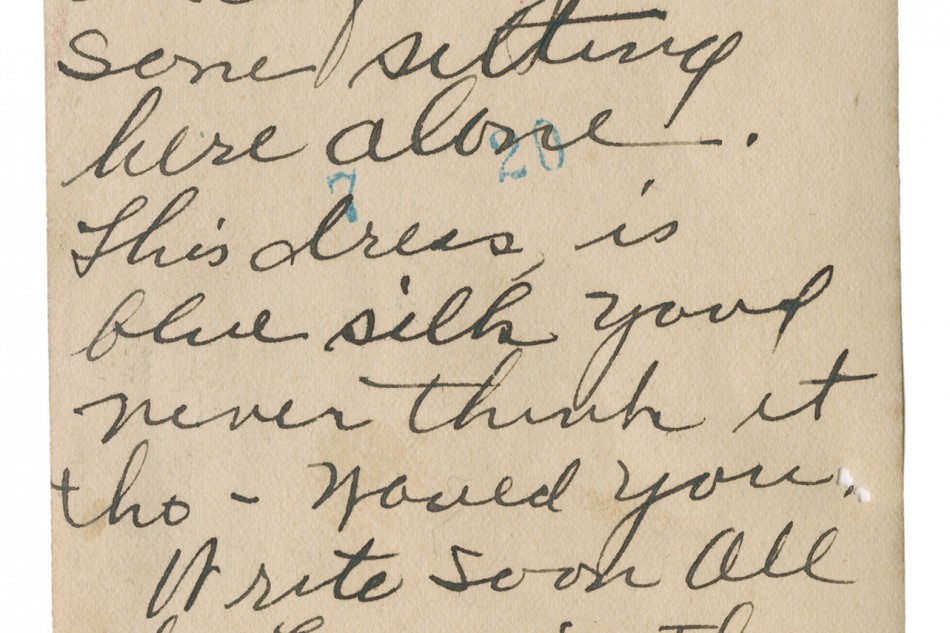 some sitting
here alone.
20
7
This dress is
blue silk youd
never think it
tho - Would you.
Write Soon All